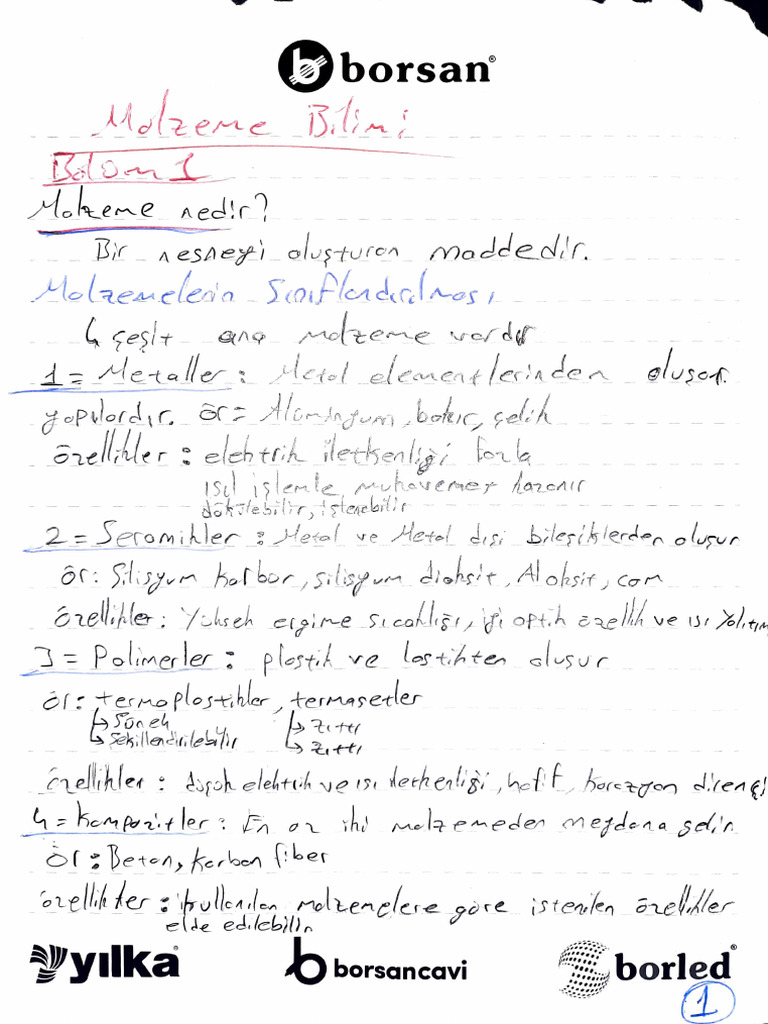 borsan®
Malzeme Bilimi
Bölüm 1
Malzeme nedir?
Bir nesneyi oluşturan maddedir.
Malzemelerin Sınıflandırılması
4 çeşit ana malzeme vardır
1 = Metaller : Metal elementlerinden oluşan
yapılardır. ör= Alüminyum, bakır, çelik
özellikler : elektrik iletkenliği fazla
ısıl işlemle mukavemet kazanır
dökülebilir, işlenebilir
2 = Seramikler : Metal ve Metal dışı bileşiklerden oluşur
ör: Silisyum karbür, silisyum dioksit, Al oksit, cam
özellikler: Yüksek ergime sıcaklığı, iyi optik özellik ve ısı yalıtım
3 = Polimerler : plastik ve lastikten oluşur
ör: termoplastikler, termosetler
↳ Sünek ↳ zıttı
↳ Şekillendirilebilir ↳ zıttı
özellikler : düşük elektrik ve ısı iletkenliği, hafif, korozyon direnci
4 = Kompozitler : En az iki malzemeden meydana gelir
ör : Beton, karbon fiber
özellikler : kullanılan malzemelere göre istenilen özellikler
elde edilebilir
yılka® borsancavi borled®
1